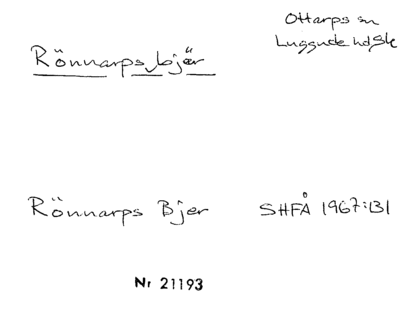 Ottarps sn
Luggude hd Sk
Rönnarps bjär
Rönnarps Bjer SHFÅ 1967:131
Nr 21193